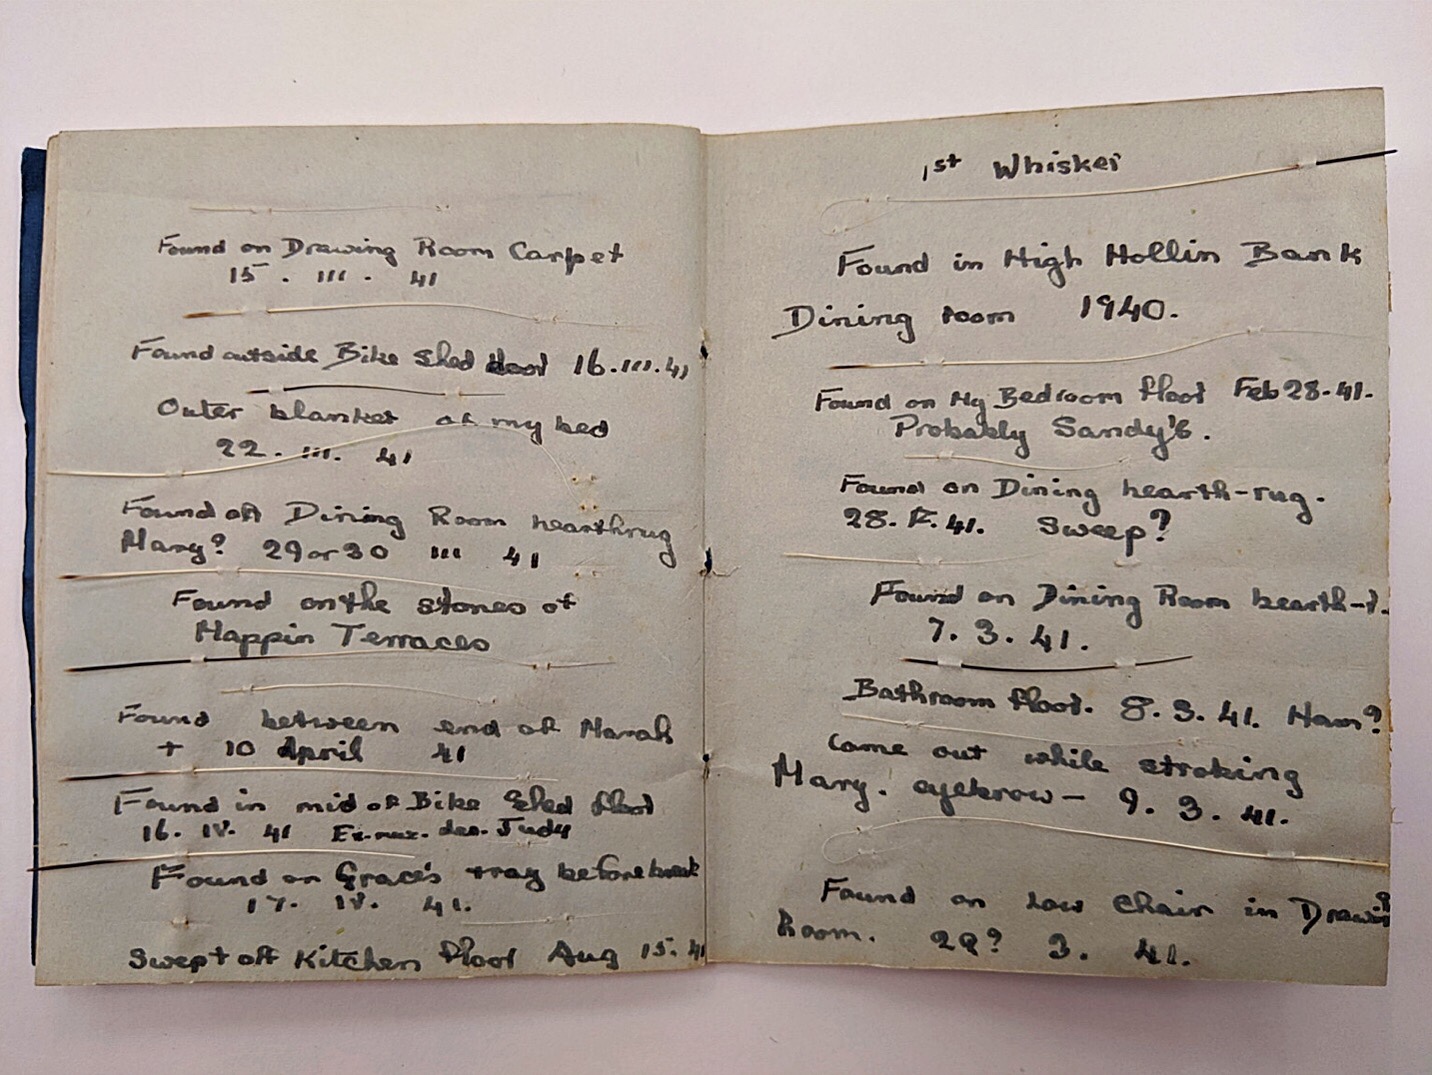 Found on Drawing Room Carpet
15 . III . 41
Found outside Bike Shed door 16.III.41
Outer blanket of my bed
22 . III . 41
Found on Dining Room hearthrug
Mary? 29 or 30 III 41
Found on the stones of
Mappin Terraces
Found between end of March
+ 10 April 41
Found in mid of Bike Shed floor
16. IV. 41 Judy
Found on Grace's tray before break
17. IV. 41.
Swept off Kitchen floor Aug 15. 41
1st Whisker
Found in High Hollin Bank
Dining room 1940.
Found on My Bedroom floor Feb 28. 41.
Probably Sandy's.
Found on Dining hearth-rug.
28. 41. Sweep?
Found on Dining Room hearth-r.
7. 3. 41.
Bathroom floor. 8. 3. 41. Ham?
Came out while stroking
Mary. eyebrow – 9. 3. 41.
Found on Low Chair in Drawing
Room. 29? 3. 41.